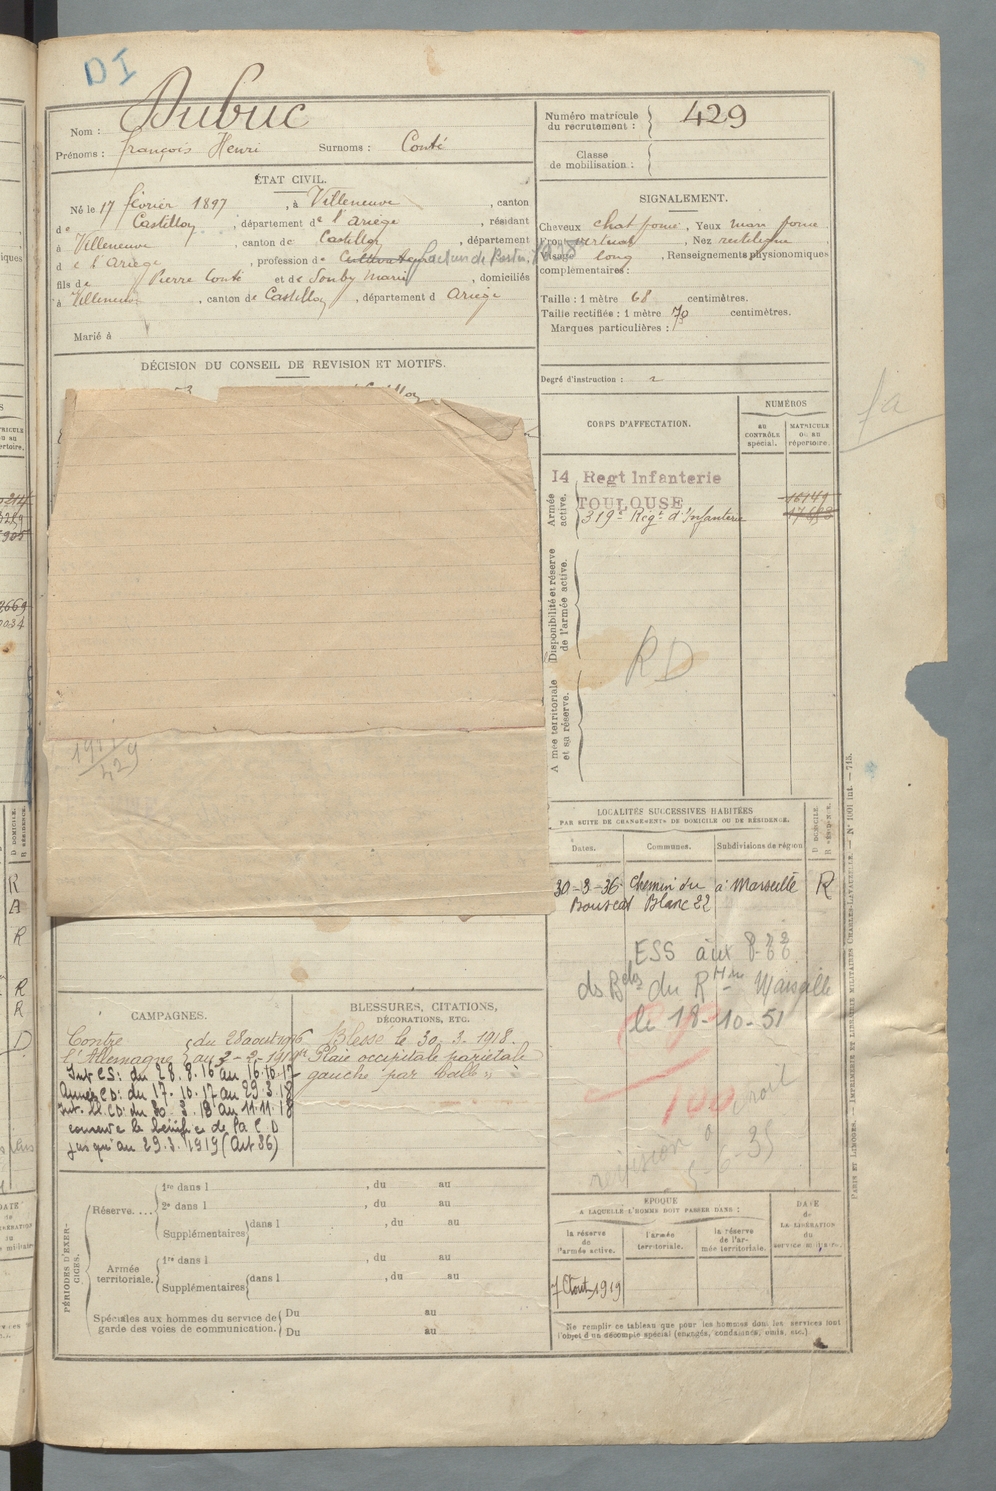 DI
Nom : Dubuc
Prénoms : François Henri Surnoms : Conté
Numéro matricule du recrutement : 429
Classe de mobilisation :
ÉTAT CIVIL.
Né le 17 février 1897, à Villeneuve, canton
de Castillon, département de l'Ariège, résidant
à Villeneuve, canton de Castillon, département
de l'Ariège, profession de Cultivateur facteur de
fils de Pierre Conté et de Souby Marie, domiciliés
à Villeneuve, canton de Castillon, département d Ariège
Marié à
SIGNALEMENT.
Cheveux chat foncé, Yeux marr foncé
Front vertical, Nez rectiligne
Visage long, Renseignements physionomiques
complémentaires :
Taille : 1 mètre 68 centimètres.
Taille rectifiée : 1 mètre 70 centimètres.
Marques particulières :
Degré d'instruction : 2
DÉCISION DU CONSEIL DE REVISION ET MOTIFS.
CORPS D'AFFECTATION.
NUMÉROS
au CONTRÔLE spécial.
MATRICULE ou au répertoire.
Armée active.
14 Regt Infanterie
TOULOUSE
16149
319e Régt d'Infanterie
Disponibilité et réserve de l'armée active.
RD
Armée territoriale et sa réserve.
429
LOCALITÉS SUCCESSIVES HABITÉES
PAR SUITE DE CHANGEMENTS DE DOMICILE OU DE RÉSIDENCE.
Dates.
Communes.
Subdivisions de région
D DOMICILE.
R RÉSIDENCE.
30-3-36 Chemin du à Marseille R
Blanc 22
ESS aux
du Marseille
le 18-10-51
100
revision
5-6-35
CAMPAGNES.
Contre l'Allemagne du 28 août 1916
Int CS: du 28.8.16 au 16.10.17
Armées CD: du 17.10.17 au 29.3.18
Int. CD: du 30.3.18 au 11.11.18
conserve le bénéfice de la CD
jusqu'au 29.3.1919 (Art 36)
BLESSURES, CITATIONS,
DÉCORATIONS, ETC.
Blessé le 30.3.1918.
Plaie occipitale pariétale
gauche par balle
PÉRIODES D'EXERCICES.
Réserve....
1re dans l , du au
2e dans l , du au
Supplémentaires dans l , du au
Armée territoriale.
1re dans l , du au
Supplémentaires dans l , du au
Spéciales aux hommes du service de garde des voies de communication.
Du au
Du au
EPOQUE
A LAQUELLE L'HOMME DOIT PASSER DANS :
la réserve de l'armée active.
l'armée territoriale.
la réserve de l'armée territoriale.
DATE de LA LIBÉRATION du service militaire.
7 Août 1919
Ne remplir ce tableau que pour les hommes dont les services font
l'objet d'un décompte spécial (engagés, condamnés, omis, etc.)
PARIS ET LIMOGES. — IMPRIMERIE ET LIBRAIRIE MILITAIRES CHARLES-LAVAUZELLE. — N° 1001 Int. — 715.